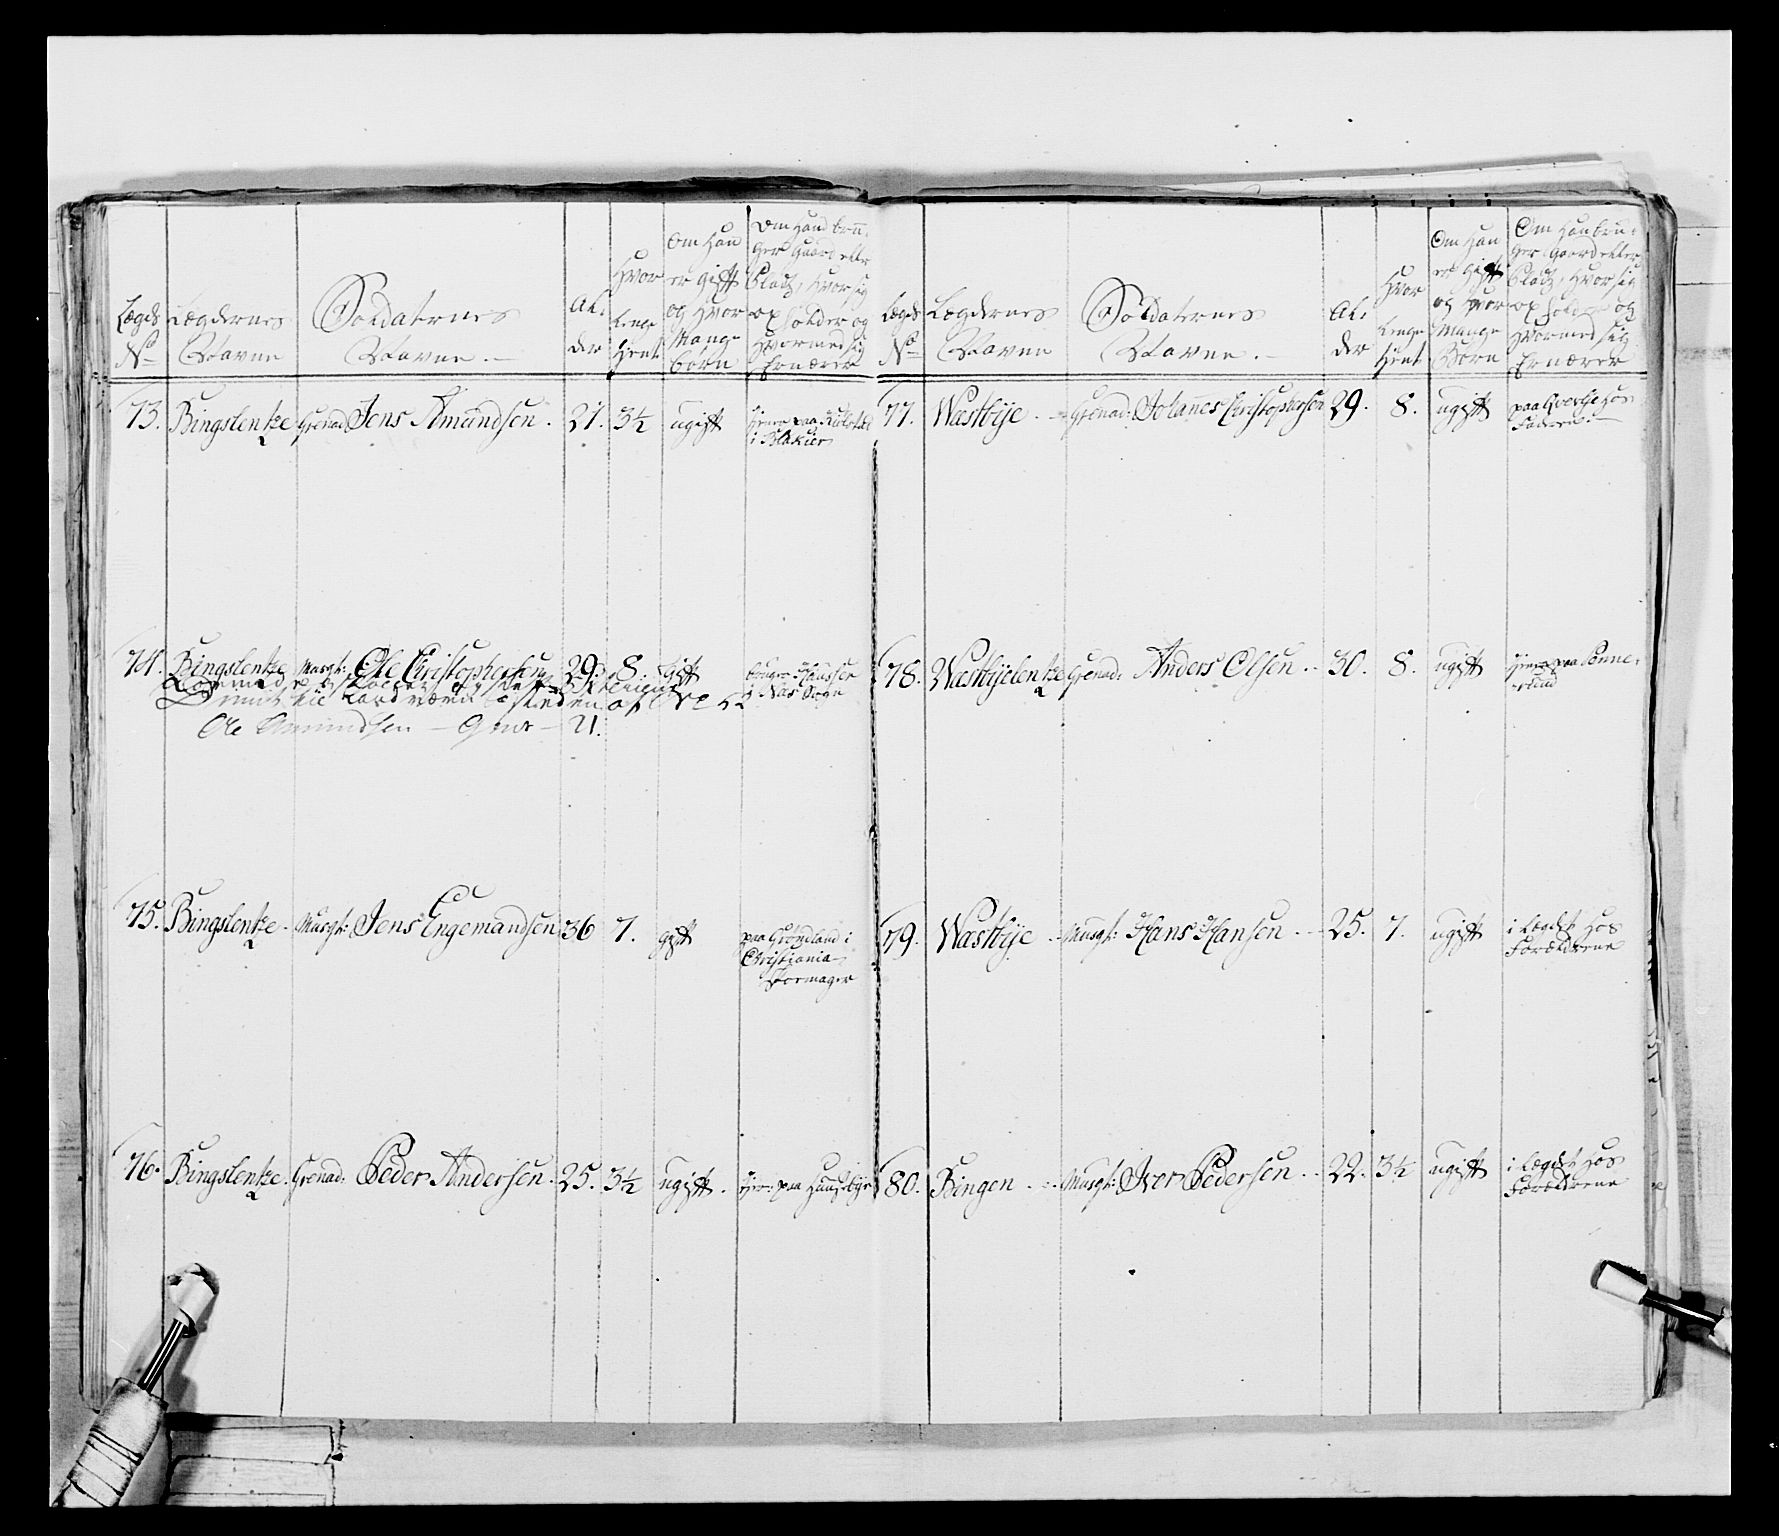 Lægds
No
Lægdernes
Navne
Soldaternes
Navne.
Al,
der
Hvor
lenge
tient
Om Han
er gift
og Hvor
Mange
børn
Om Hand bru-
ger Gaard eller
Pladtz, Hvor sig
opholder og
Hvormed sig
Ernærer
73. Bingslentze Grenad. Jens Amundsen. 21. 3½ ugift
i Blakier
74. Bingslentze Musqt: Ole Christophersen 29 8. gift
Ole Amundsen 21.
75. Bingslentze. Musqt: Jens Engemandsen 36 7. gift paa Grondland i
Christiania
Skormager
76. Bingslentze. Grenad. Peder Andersen. 25. 3½ ugift. paa
Lægds
No
Lægdernes
Navne
Soldaternes
Navne.
Al,
der
Hvor
lenge
tient
Om Han
er gift
og Hvor
Mange
Børn
Om Han bru-
ger Gaard eller
Pladtz, Hvor sig
opholder og
Hvormed sig
Ernærer
77. Wæstbÿe. Grenad: Johannes Christophersen 29. 8. ugift paa hos
Faderen.
78. Wæstbÿelentze Grenad: Anders Olsen 30. 8. ugift paa
79. Wæstbÿe Musqt: Hans Hansen 25. 7. ugift i Lægdet hos
Forældrene
80. Bingen Musqt: Iver Pedersen 22. 3½ ugift i Lægdet hos
Forældrene